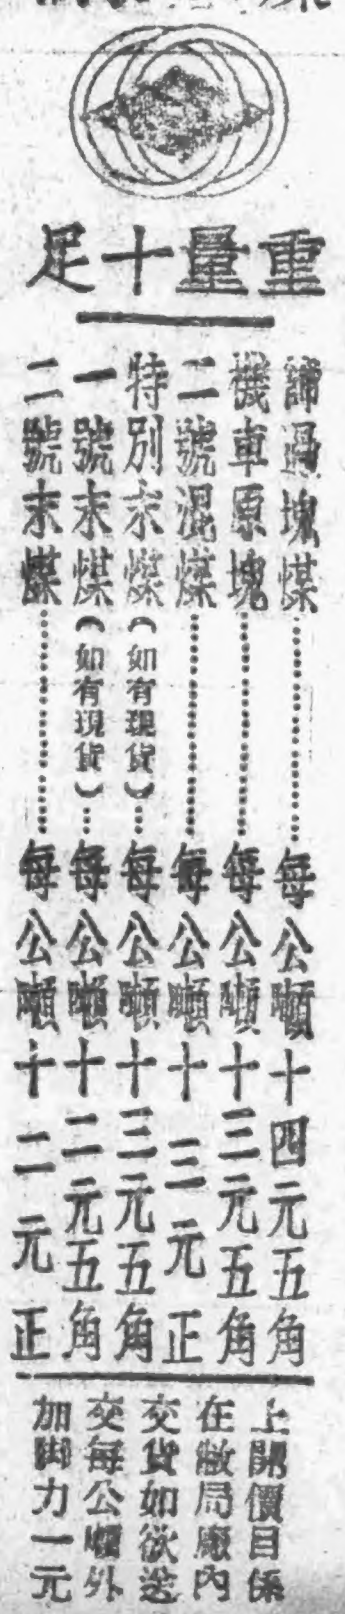 重量十足
篩過塊煤………每公噸十四元五角
機車原塊………每公噸十三元五角
二號混煤………每公噸十三元正
特別末煤(如有現貨)…每公噸十三元五角
一號末煤(如有現貨)…每公噸十二元五角
二號末煤………每公噸十二元正
上開價目係
在敝局廠內
交貨如欲送
交每公噸外
加脚力一元